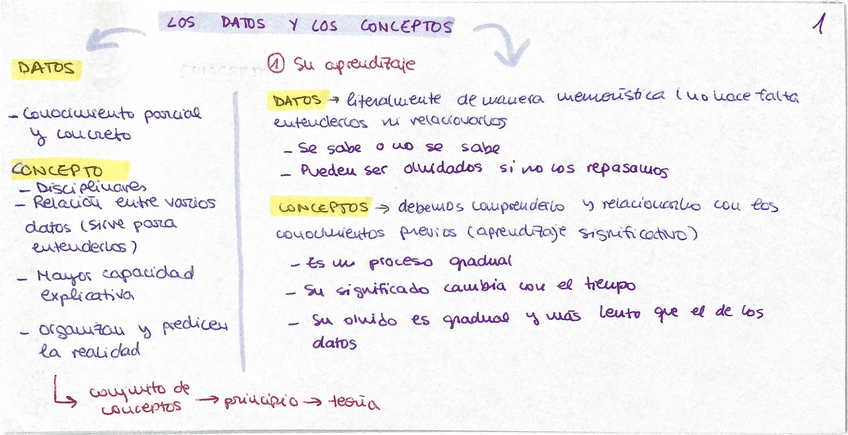 LOS DATOS Y LOS CONCEPTOS
1
DATOS
- Conocimiento parcial
y concreto
CONCEPTO
- Disciplinares
- Relación entre varios
datos (sirve para
entenderlos)
- Mayor capacidad
explicativa
- organizan y predicen
la realidad
conjunto de
conceptos → principio → teoría
① Su aprendizaje
DATOS → literalmente de manera memorística (no hace falta
entenderlos ni relacionarlos
- Se sabe o no se sabe
- Pueden ser olvidados si no los repasamos
CONCEPTOS → debemos comprenderlo y relacionarlo con los
conocimientos previos (aprendizaje significativo)
- Es un proceso gradual
- Su significado cambia con el tiempo
- Su olvido es gradual y más lento que el de los
datos